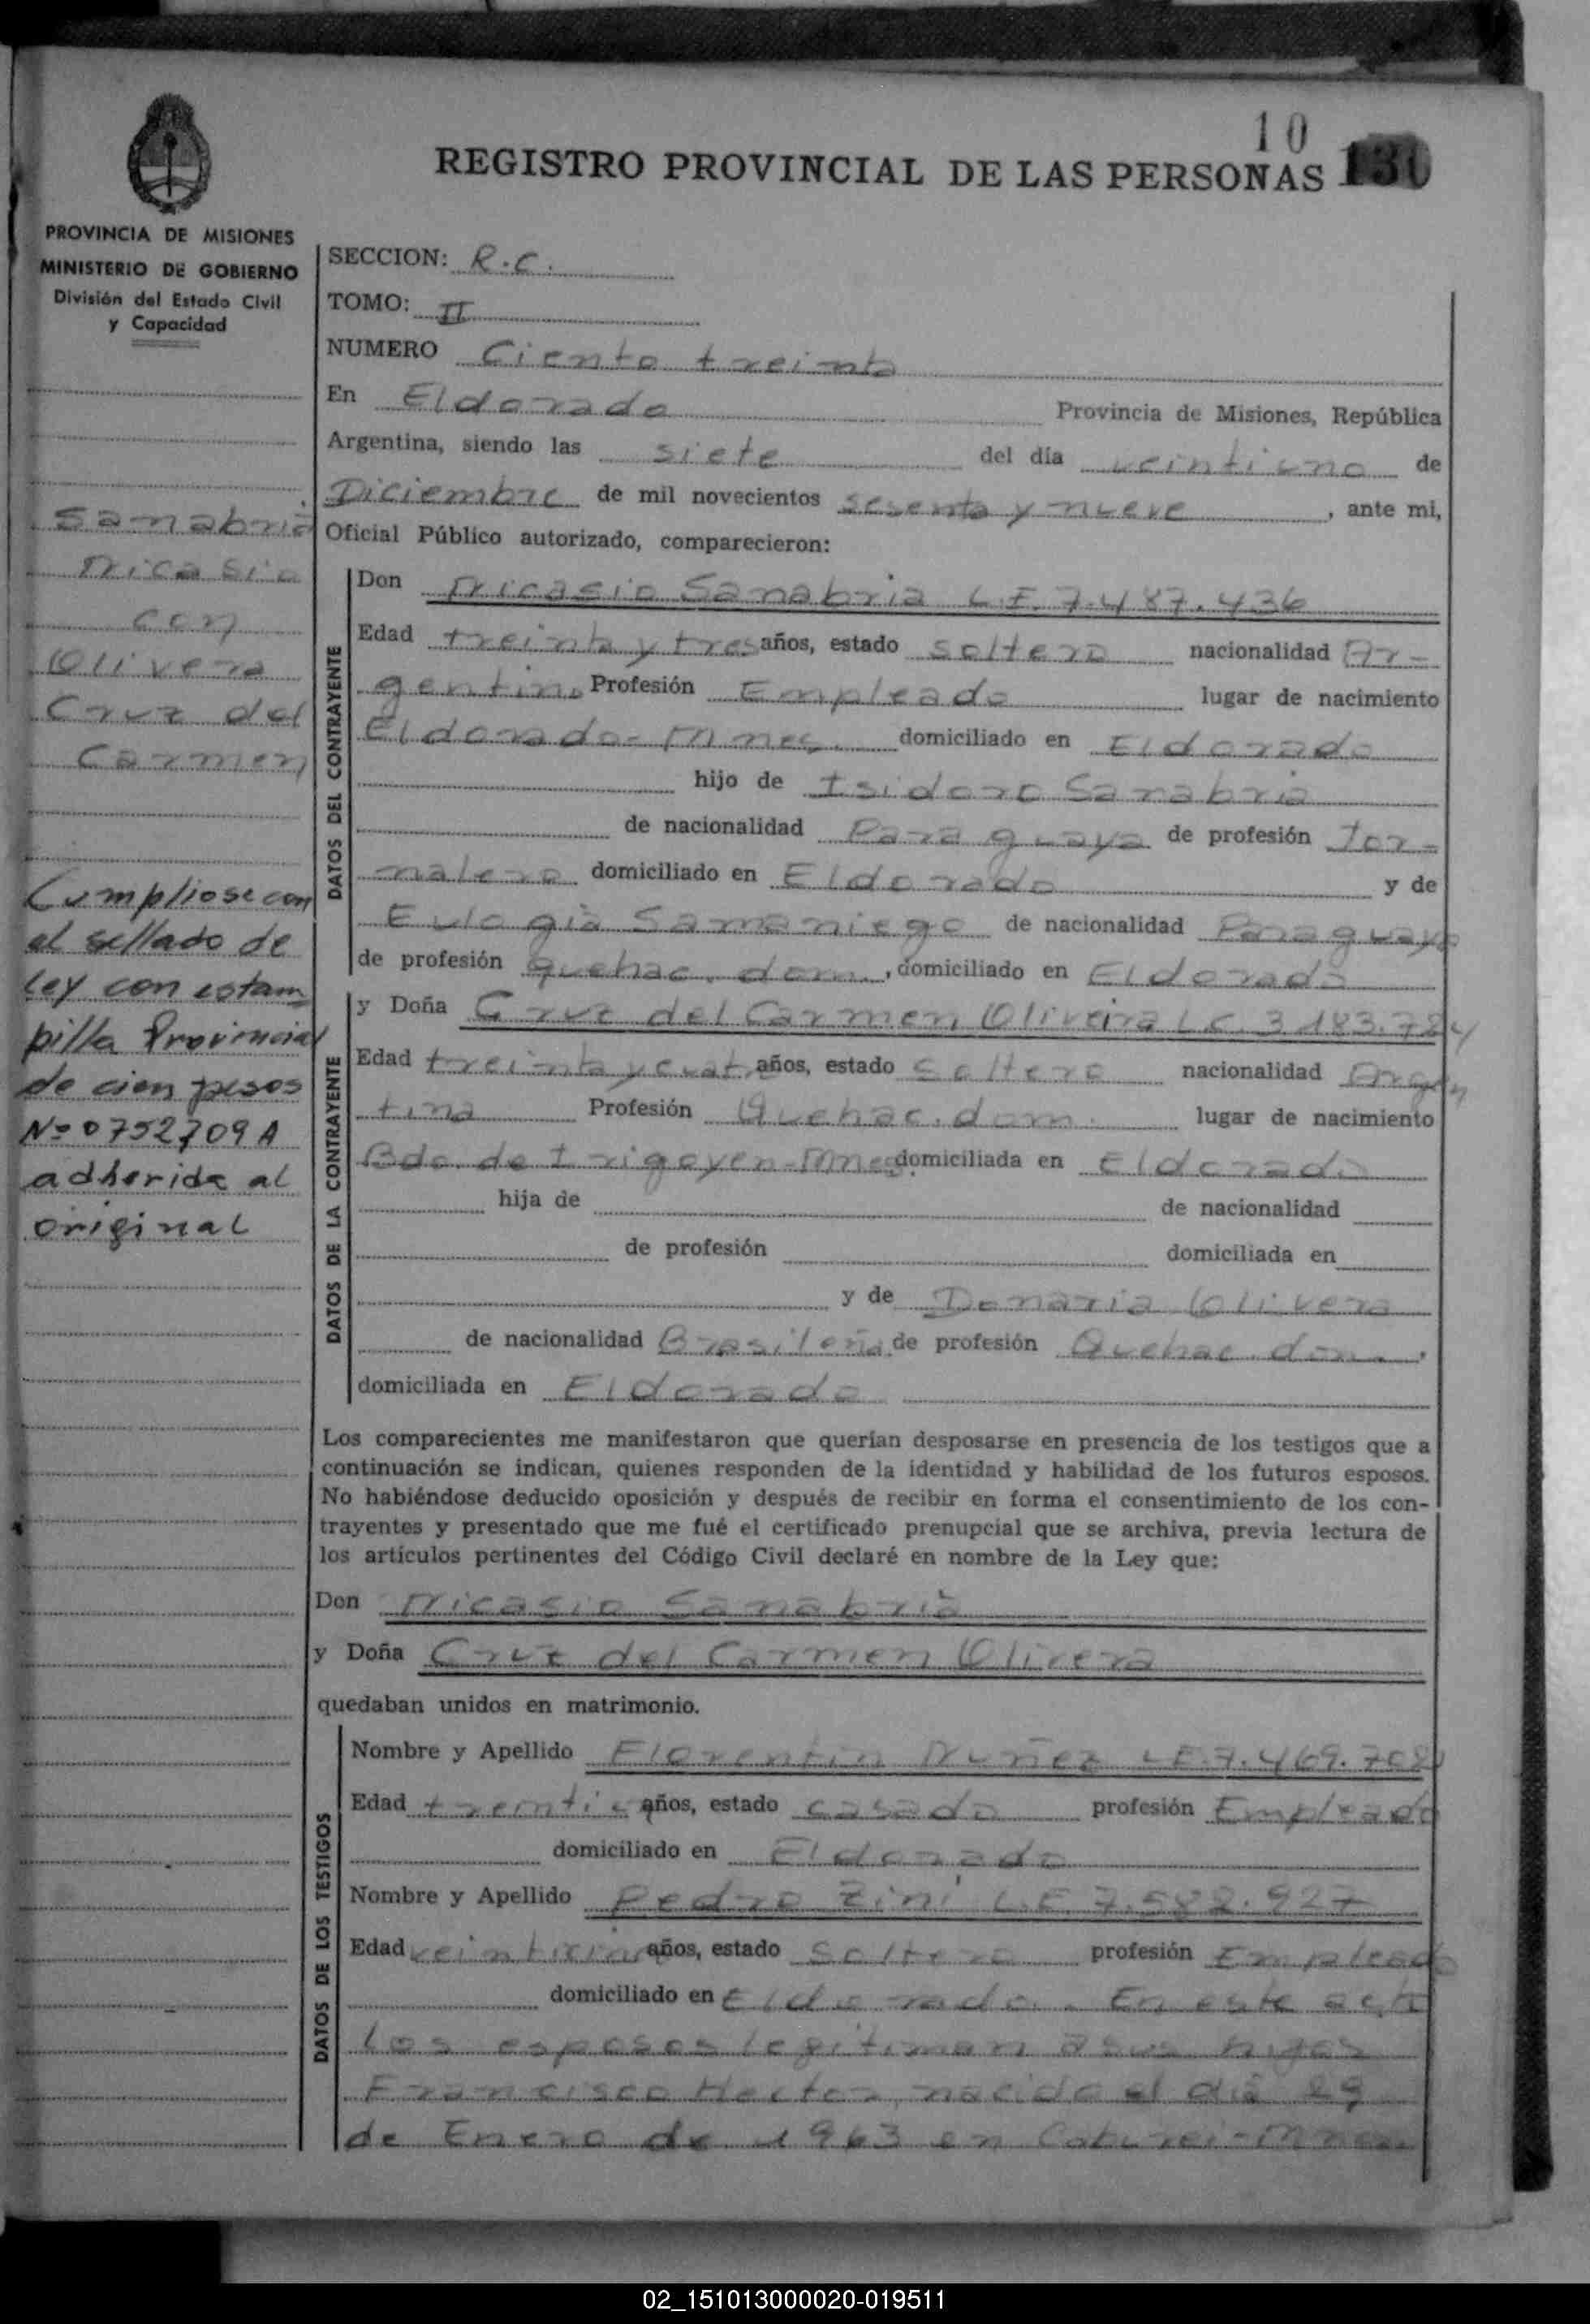 10
REGISTRO PROVINCIAL DE LAS PERSONAS 130
PROVINCIA DE MISIONES
MINISTERIO DE GOBIERNO
División del Estado Civil
y Capacidad
Sanabria
Nicasio
con
Olivera
Cruz del
Carmen
Cumpliose con
el sellado de
ley con estam
pilla Provincial
de cien pesos
Nº 0752709A
adherida al
original
SECCION: R.C.
TOMO: II
NUMERO Ciento treinta
En Eldorado Provincia de Misiones, República
Argentina, siendo las siete del día veintiuno de
Diciembre de mil novecientos sesenta y nueve, ante mi,
Oficial Público autorizado, comparecieron:
DATOS DEL CONTRAYENTE
Don Nicasio Sanabria L.E. 7.487.436
Edad treinta y tres años, estado soltero nacionalidad Ar-
gentino Profesión Empleado lugar de nacimiento
Eldorado-Mnes. domiciliado en Eldorado
hijo de Isidoro Sanabria
de nacionalidad Paraguaya de profesión Jor-
nalero domiciliado en Eldorado y de
Eulogia Samaniego de nacionalidad Paraguaya
de profesión quehac. dom., domiciliado en Eldorado
DATOS DE LA CONTRAYENTE
y Doña Cruz del Carmen Oliveira L.C. 3.183.724
Edad treinta y cuatro años, estado Soltera nacionalidad Argen
tina Profesión Quehac. dom. lugar de nacimiento
Bdo. de Irigoyen-Mnes domiciliada en Eldorado
hija de de nacionalidad
de profesión domiciliada en
y de Donaria Olivera
de nacionalidad Brasileña de profesión Quehac. dom.,
domiciliada en Eldorado
Los comparecientes me manifestaron que querían desposarse en presencia de los testigos que a
continuación se indican, quienes responden de la identidad y habilidad de los futuros esposos.
No habiéndose deducido oposición y después de recibir en forma el consentimiento de los con-
trayentes y presentado que me fué el certificado prenupcial que se archiva, previa lectura de
los artículos pertinentes del Código Civil declaré en nombre de la Ley que:
Don Nicasio Sanabria
y Doña Cruz del Carmen Olivera
quedaban unidos en matrimonio.
DATOS DE LOS TESTIGOS
Nombre y Apellido Florentin Nuñez L.E. 7.469.708
Edad años, estado casado profesión Empleado
domiciliado en Eldorado
Nombre y Apellido Pedro Zini L.E. 7.582.927
Edad años, estado Soltero profesión Empleado
domiciliado en Eldorado. En este acto
los esposos legitiman a sus hijos
Francisco Hector, nacido el día 29
de Enero de 1963 en Caburei-Mnes
02_151013000020-019511